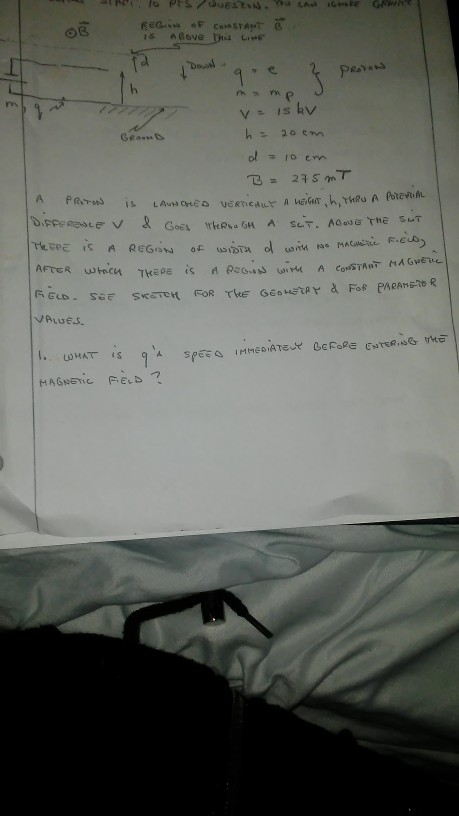 START. 10 PTS/QUESTION. YOU CAN IGNORE GRAVITY
⊙B⃗
REGION OF CONSTANT B⃗
IS ABOVE THIS LINE
d
DOWN
h
m, q
GROUND
q = e
m = mp
} PROTON
V = 15 kV
h = 20 cm
d = 10 cm
B = 275 mT
A PROTON IS LAUNCHED VERTICALLY A HEIGHT, h, THRU A POTENTIAL
DIFFERENCE V & GOES THROUGH A SLIT. ABOVE THE SLIT
THERE IS A REGION OF WIDTH d WITH NO MAGNETIC FIELD,
AFTER WHICH THERE IS A REGION WITH A CONSTANT MAGNETIC
FIELD. SEE SKETCH FOR THE GEOMETRY & FOR PARAMETER
VALUES.
1. WHAT IS q's SPEED IMMEDIATELY BEFORE ENTERING THE
MAGNETIC FIELD?